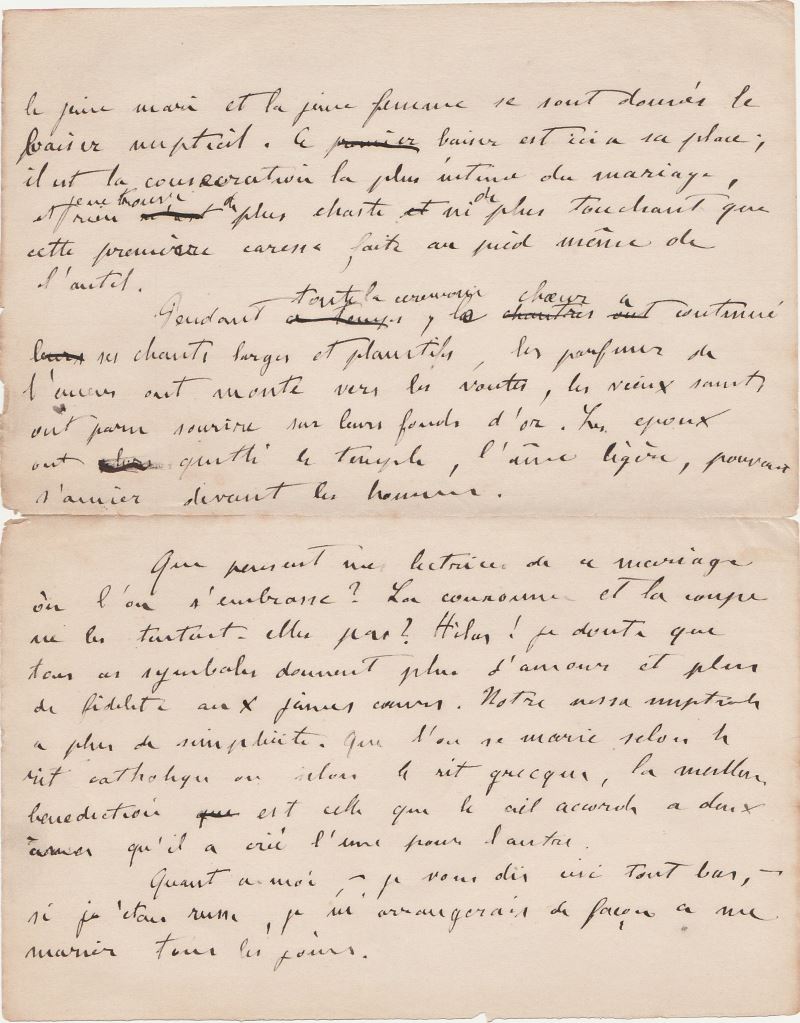 le jeune mari et la jeune femme se sont donnés le
baiser nuptial. Ce premier baiser est ici a sa place;
il est la consecration la plus intime du mariage,
je ne trouve
et rien n'est de plus chaste et ni de plus touchant que
cette première caresse faite au pied même de
l'autel.
toute la ceremonie chœur a
Pendant ce temps, le chantres ont continué
leurs ses chants larges et plaintifs, les parfums de
l'encens ont monté vers les voutes, les vieux saints
ont paru sourire sur leurs fonds d'or. Les epoux
ont quitté le temple, l'âme légère, pouvant
s'aimer devant les hommes.
Que pensent mes lectrices de ce mariage
où l'on s'embrasse? La couronne et la coupe
ne les tentent-elles pas? Hélas! je doute que
tous ces symboles donnent plus d'amour et plus
de fidelité aux jeunes cœurs. Notre messe nuptiale
a plus de simplicité. Que l'on se marie selon le
rit catholique ou selon le rit grecque, la meilleure
benediction que est celle que le ciel accorde a deux
âmes qu'il a créé l'une pour l'autre.
Quant a moi, – je vous dis ici tout bas, –
si j'étais russe, je m'arrangerais de façon a me
marier tous les jours.